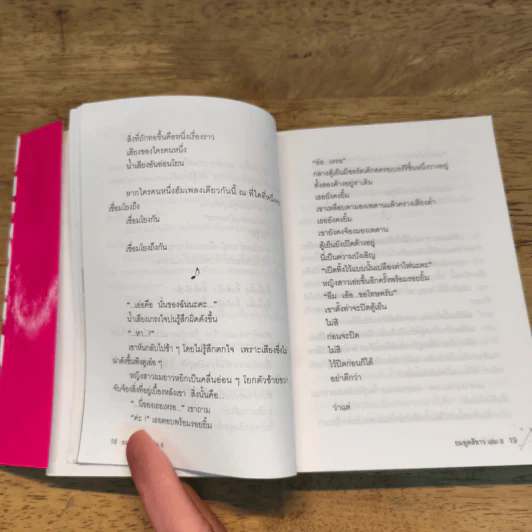 สิ่งที่ถักทอขึ้นคือหนึ่งเรื่องราว
เสียงของใครคนหนึ่ง
น้ำเสียงอันอ่อนโยน
หากใครคนหนึ่งฮัมเพลงเดียวกันนี้ ณ ที่ใดที่หนึ่งจะ
เชื่อมโยงถึง
เชื่อมโยงกัน
เชื่อมโยงถึงกัน
"...เอ่อคือ นั่นของฉันนะคะ..."
น้ำเสียงเกรงใจปนรู้สึกผิดดังขึ้น
"...หา...!"
เขาหันกลับไปช้า ๆ โดยไม่รู้สึกตกใจ เพราะเสียงซึ่งไม่
น่าดังขึ้น
หญิงสาวผมยาวหยิกเป็นคลื่นอ่อน ๆ โยกตัวซ้ายขวา
จับจ้องสิ่งที่อยู่เบื้องหลังเขา สิ่งนั้นคือ...
"...นี่ของเธอเหรอ..." เขาถาม
"ค่ะ !" เธอตอบพร้อมรอยยิ้ม
18
"อ้อ...เหรอ"
กลางตู้เย็นมีชอร์ตเค้กสตรอเบอร์รี่ชิ้นหนึ่งวางอยู่
ทั้งสองต่างอยู่ท่าเดิม
เธอยังคงยิ้ม
เขาเหลือบตามองเพดานแล้วกวาดเสียงต่ำ
เธอยังคงยิ้ม
เขายังคงจ้องมองเพดาน
ตู้เย็นยังเปิดค้างอยู่
นี่เป็นความบังเอิญ
"เปิดทิ้งไว้แบบนั้นเปลืองค่าไฟนะคะ"
หญิงสาวเอ่ยขึ้นอีกครั้งพร้อมรอยยิ้ม
"อืม...เอ้อ...ขอโทษครับ"
เขาตั้งท่าจะปิดตู้เย็น
ไม่สิ
ก่อนจะปิด
ไม่สิ
ไว้ปิดก่อนก็ได้
อย่าดีกว่า
ว่าแต่
ยมทูตสีขาว เล่ม ๑ 19